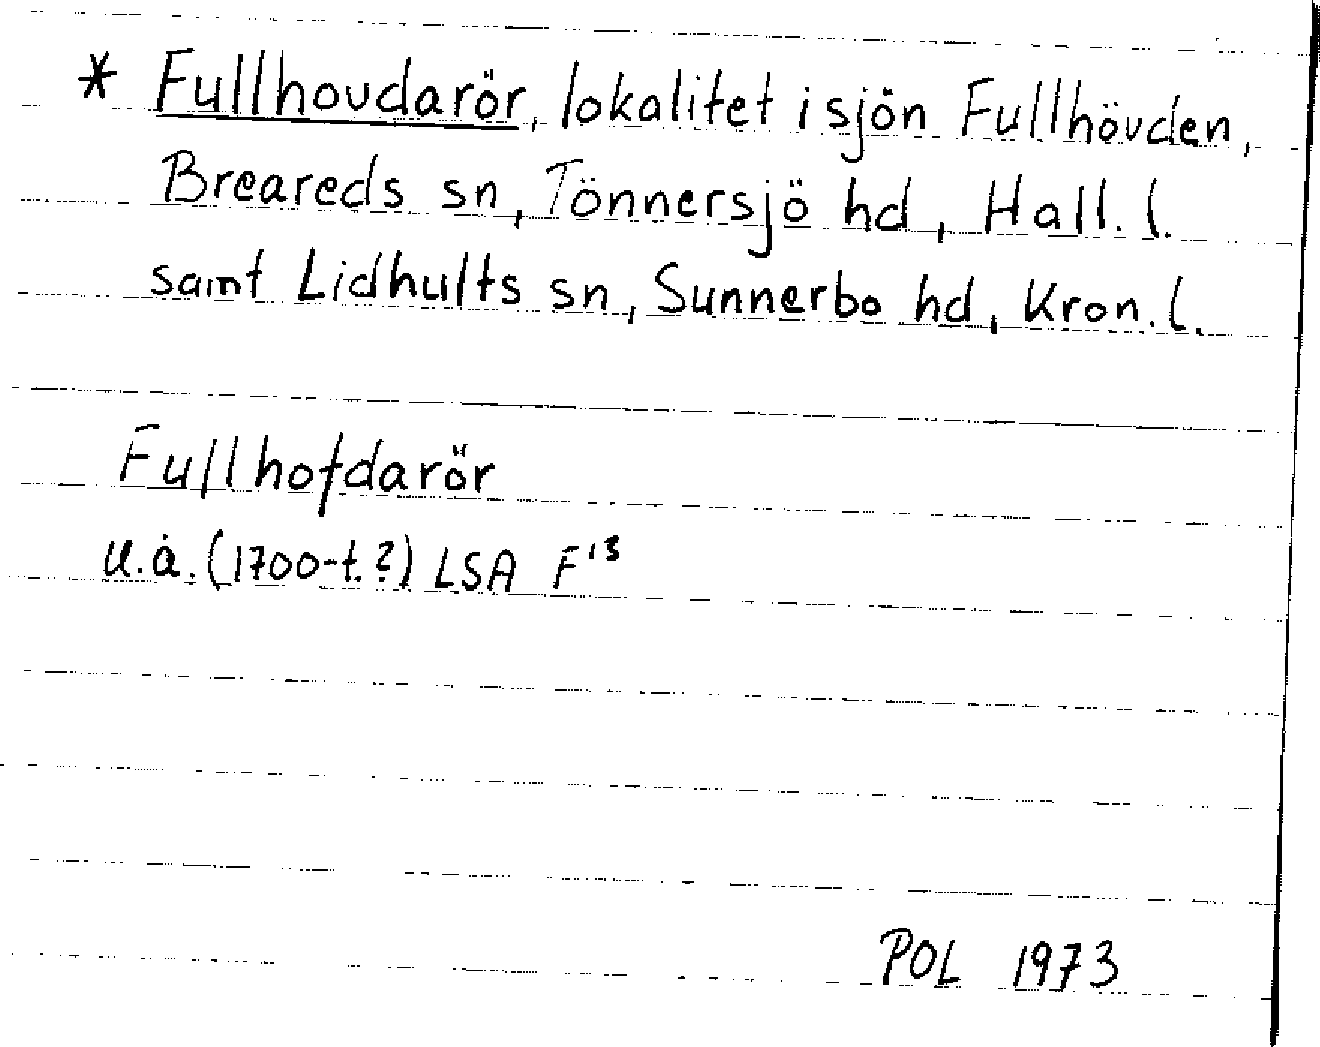 * Fullhovdarör, lokalitet i sjön Fullhövden,
Breareds sn, Tönnersjö hd, Hall. l.
samt Lidhults sn, Sunnerbo hd, Kron. l.
Fullhofdarör
u.å. (1700-t.?) LSA F¹³
POL 1973